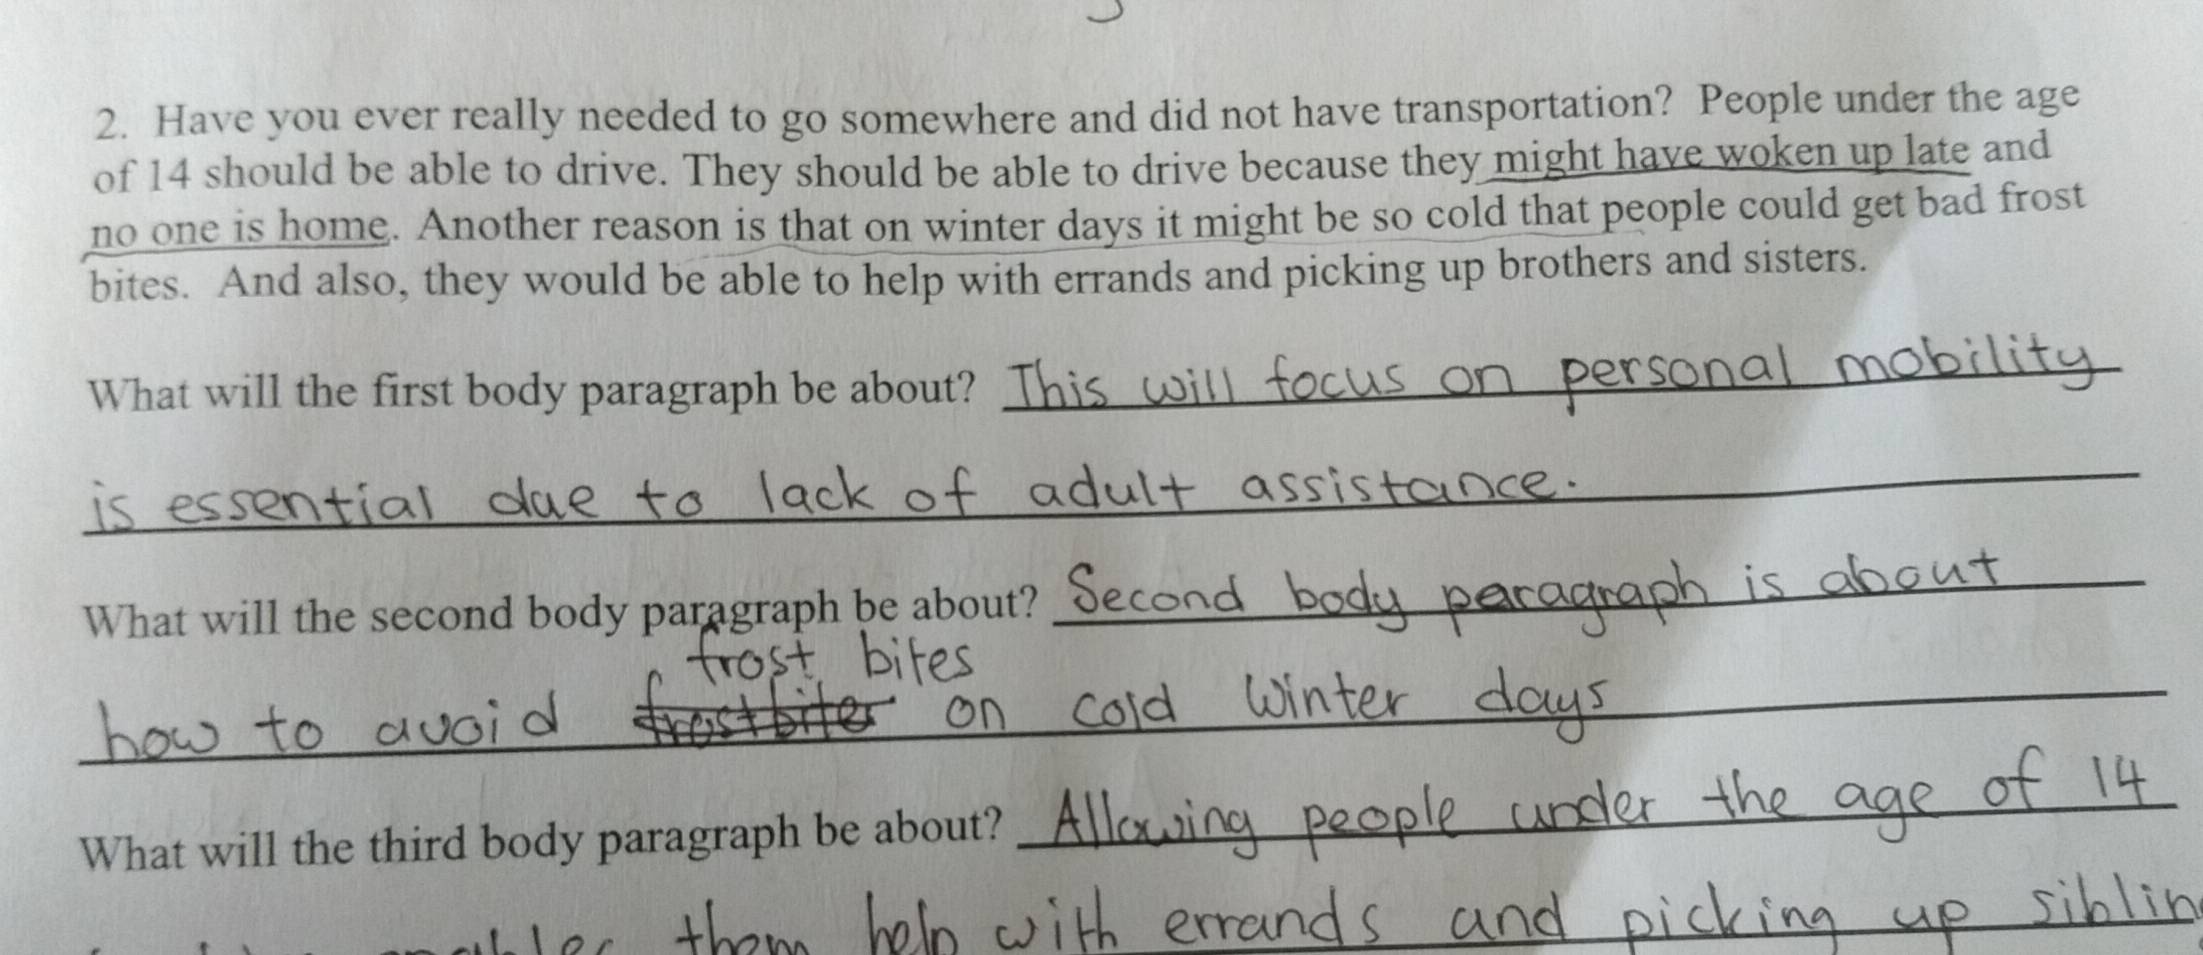 2. Have you ever really needed to go somewhere and did not have transportation? People under the age
of 14 should be able to drive. They should be able to drive because they might have woken up late and
no one is home. Another reason is that on winter days it might be so cold that people could get bad frost
bites. And also, they would be able to help with errands and picking up brothers and sisters.
What will the first body paragraph be about? This will focus on personal mobility
is essential due to lack of adult assistance.
What will the second body paragraph be about? Second body paragraph is about
frost bites
how to avoid frostbites on cold Winter days
What will the third body paragraph be about? Allowing people under the age of 14
them help with errands and picking up